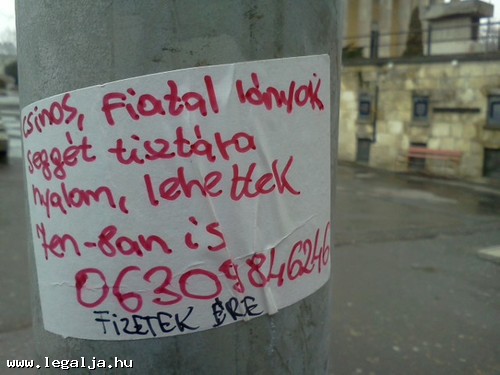 csinos, fiatal lányok
seggét tisztára
nyalom, lehettek
Men-ban is
06309846246
FIZETEK ÉRE
www.legalja.hu